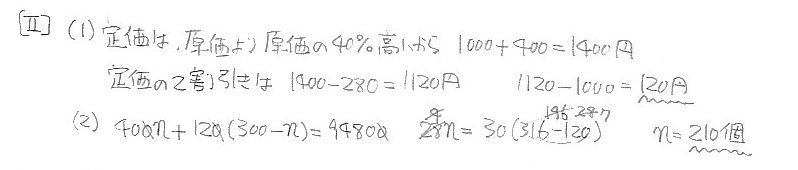 [II] (1) 定価は、原価より原価の40%高いから 1000+400=1400円
定価の2割引きは 1400-280=1120円 1120-1000=120円
(2) 400n+120(300-n)=94800 28n=30(316-120) n=210個